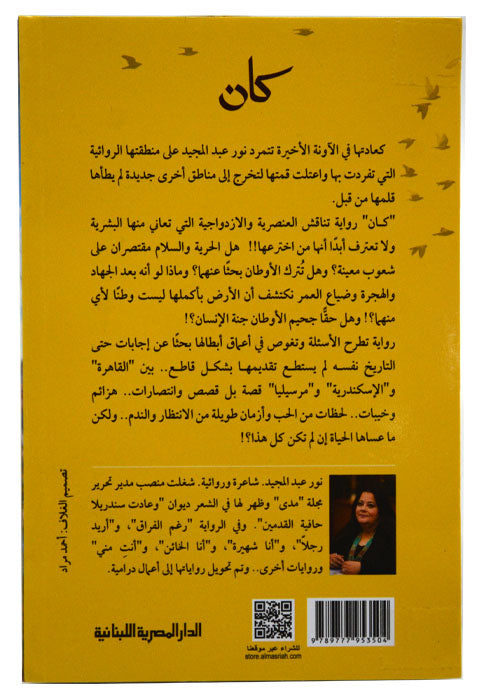 كان
كعادتها في الآونة الأخيرة تتمرد نور عبد المجيد على منطقتها الروائية
التي تفردت بها واعتلت قمتها لتخرج إلى مناطق أخرى جديدة لم يطأها
قلمها من قبل.
"كـان" رواية تناقش العنصرية والازدواجية التي تعاني منها البشرية
ولا تعترف أبدًا أنها من اخترعها!! هل الحرية والسلام مقتصران على
شعوب معينة؟ وهل تُترك الأوطان بحثًا عنهما؟ وماذا لو أنه بعد الجهاد
والهجرة وضياع العمر نكتشف أن الأرض بأكملها ليست وطنًا لأي
منهما؟! وهل حقًّا جحيم الأوطان جنة الإنسان؟!
رواية تطرح الأسئلة وتغوص في أعماق أبطالها بحثًا عن إجابات حتى
التاريخ نفسه لم يستطع تقديمها بشكل قاطع.. بين "القاهرة"
و"الإسكندرية" و"مرسيليا" قصة بل قصص وانتصارات.. هزائم
وخيبات.. لحظات من الحب وأزمان طويلة من الانتظار والندم.. ولكن
ما عساها الحياة إن لم تكن كل هذا؟!
نور عبد المجيد. شاعرة وروائية. شغلت منصب مدير تحرير
مجلة "مدى" وظهر لها في الشعر ديوان "وعادت سندريلا
حافية القدمين". وفي الرواية "رغم الفراق"، و"أريد
رجلاً"، و"أنا شهيرة"، و"أنا الخائن"، و"أنتِ مني"
وروايات أخرى.. وتم تحويل رواياتها إلى أعمال درامية.
تصميم الغلاف: أحمد مراد
الدار المصرية اللبنانية
للشراء عبر موقعنا
store.almasriah.com
9 789777 953504